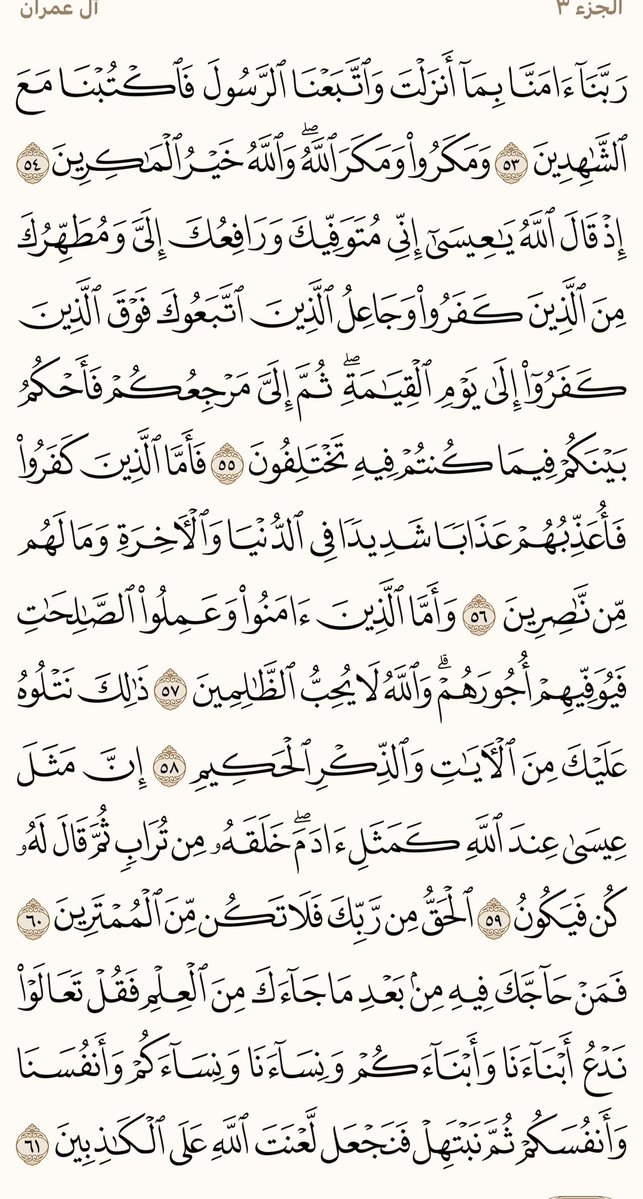 الجزء ٣ آل عمران
رَبَّنَآ ءَامَنَّا بِمَآ أَنزَلۡتَ وَٱتَّبَعۡنَا ٱلرَّسُولَ فَٱكۡتُبۡنَا مَعَ
ٱلشَّٰهِدِينَ ٥٣ وَمَكَرُواْ وَمَكَرَ ٱللَّهُۖ وَٱللَّهُ خَيۡرُ ٱلۡمَٰكِرِينَ ٥٤
إِذۡ قَالَ ٱللَّهُ يَٰعِيسَىٰٓ إِنِّي مُتَوَفِّيكَ وَرَافِعُكَ إِلَيَّ وَمُطَهِّرُكَ
مِنَ ٱلَّذِينَ كَفَرُواْ وَجَاعِلُ ٱلَّذِينَ ٱتَّبَعُوكَ فَوۡقَ ٱلَّذِينَ
كَفَرُوٓاْ إِلَىٰ يَوۡمِ ٱلۡقِيَٰمَةِۖ ثُمَّ إِلَيَّ مَرۡجِعُكُمۡ فَأَحۡكُمُ
بَيۡنَكُمۡ فِيمَا كُنتُمۡ فِيهِ تَخۡتَلِفُونَ ٥٥ فَأَمَّا ٱلَّذِينَ كَفَرُواْ
فَأُعَذِّبُهُمۡ عَذَابٗا شَدِيدٗا فِي ٱلدُّنۡيَا وَٱلۡأٓخِرَةِ وَمَا لَهُم
مِّن نَّٰصِرِينَ ٥٦ وَأَمَّا ٱلَّذِينَ ءَامَنُواْ وَعَمِلُواْ ٱلصَّٰلِحَٰتِ
فَيُوَفِّيهِمۡ أُجُورَهُمۡۗ وَٱللَّهُ لَا يُحِبُّ ٱلظَّٰلِمِينَ ٥٧ ذَٰلِكَ نَتۡلُوهُ
عَلَيۡكَ مِنَ ٱلۡأٓيَٰتِ وَٱلذِّكۡرِ ٱلۡحَكِيمِ ٥٨ إِنَّ مَثَلَ
عِيسَىٰ عِندَ ٱللَّهِ كَمَثَلِ ءَادَمَۖ خَلَقَهُۥ مِن تُرَابٖ ثُمَّ قَالَ لَهُۥ
كُن فَيَكُونُ ٥٩ ٱلۡحَقُّ مِن رَّبِّكَ فَلَا تَكُن مِّنَ ٱلۡمُمۡتَرِينَ ٦٠
فَمَنۡ حَآجَّكَ فِيهِ مِنۢ بَعۡدِ مَا جَآءَكَ مِنَ ٱلۡعِلۡمِ فَقُلۡ تَعَالَوۡاْ
نَدۡعُ أَبۡنَآءَنَا وَأَبۡنَآءَكُمۡ وَنِسَآءَنَا وَنِسَآءَكُمۡ وَأَنفُسَنَا
وَأَنفُسَكُمۡ ثُمَّ نَبۡتَهِلۡ فَنَجۡعَل لَّعۡنَتَ ٱللَّهِ عَلَى ٱلۡكَٰذِبِينَ ٦١